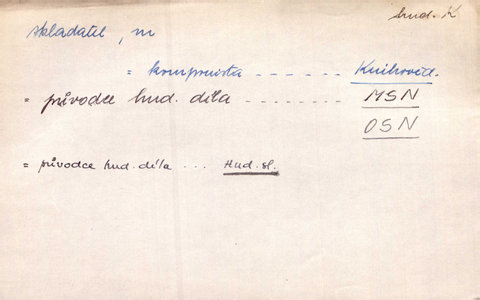 hud. K
skladatel, m
= komponista - - - - - - Knihověd.
= původce hud. díla - - - - - - - - MSN
OSN
= původce hud. díla ... Hud. sl.